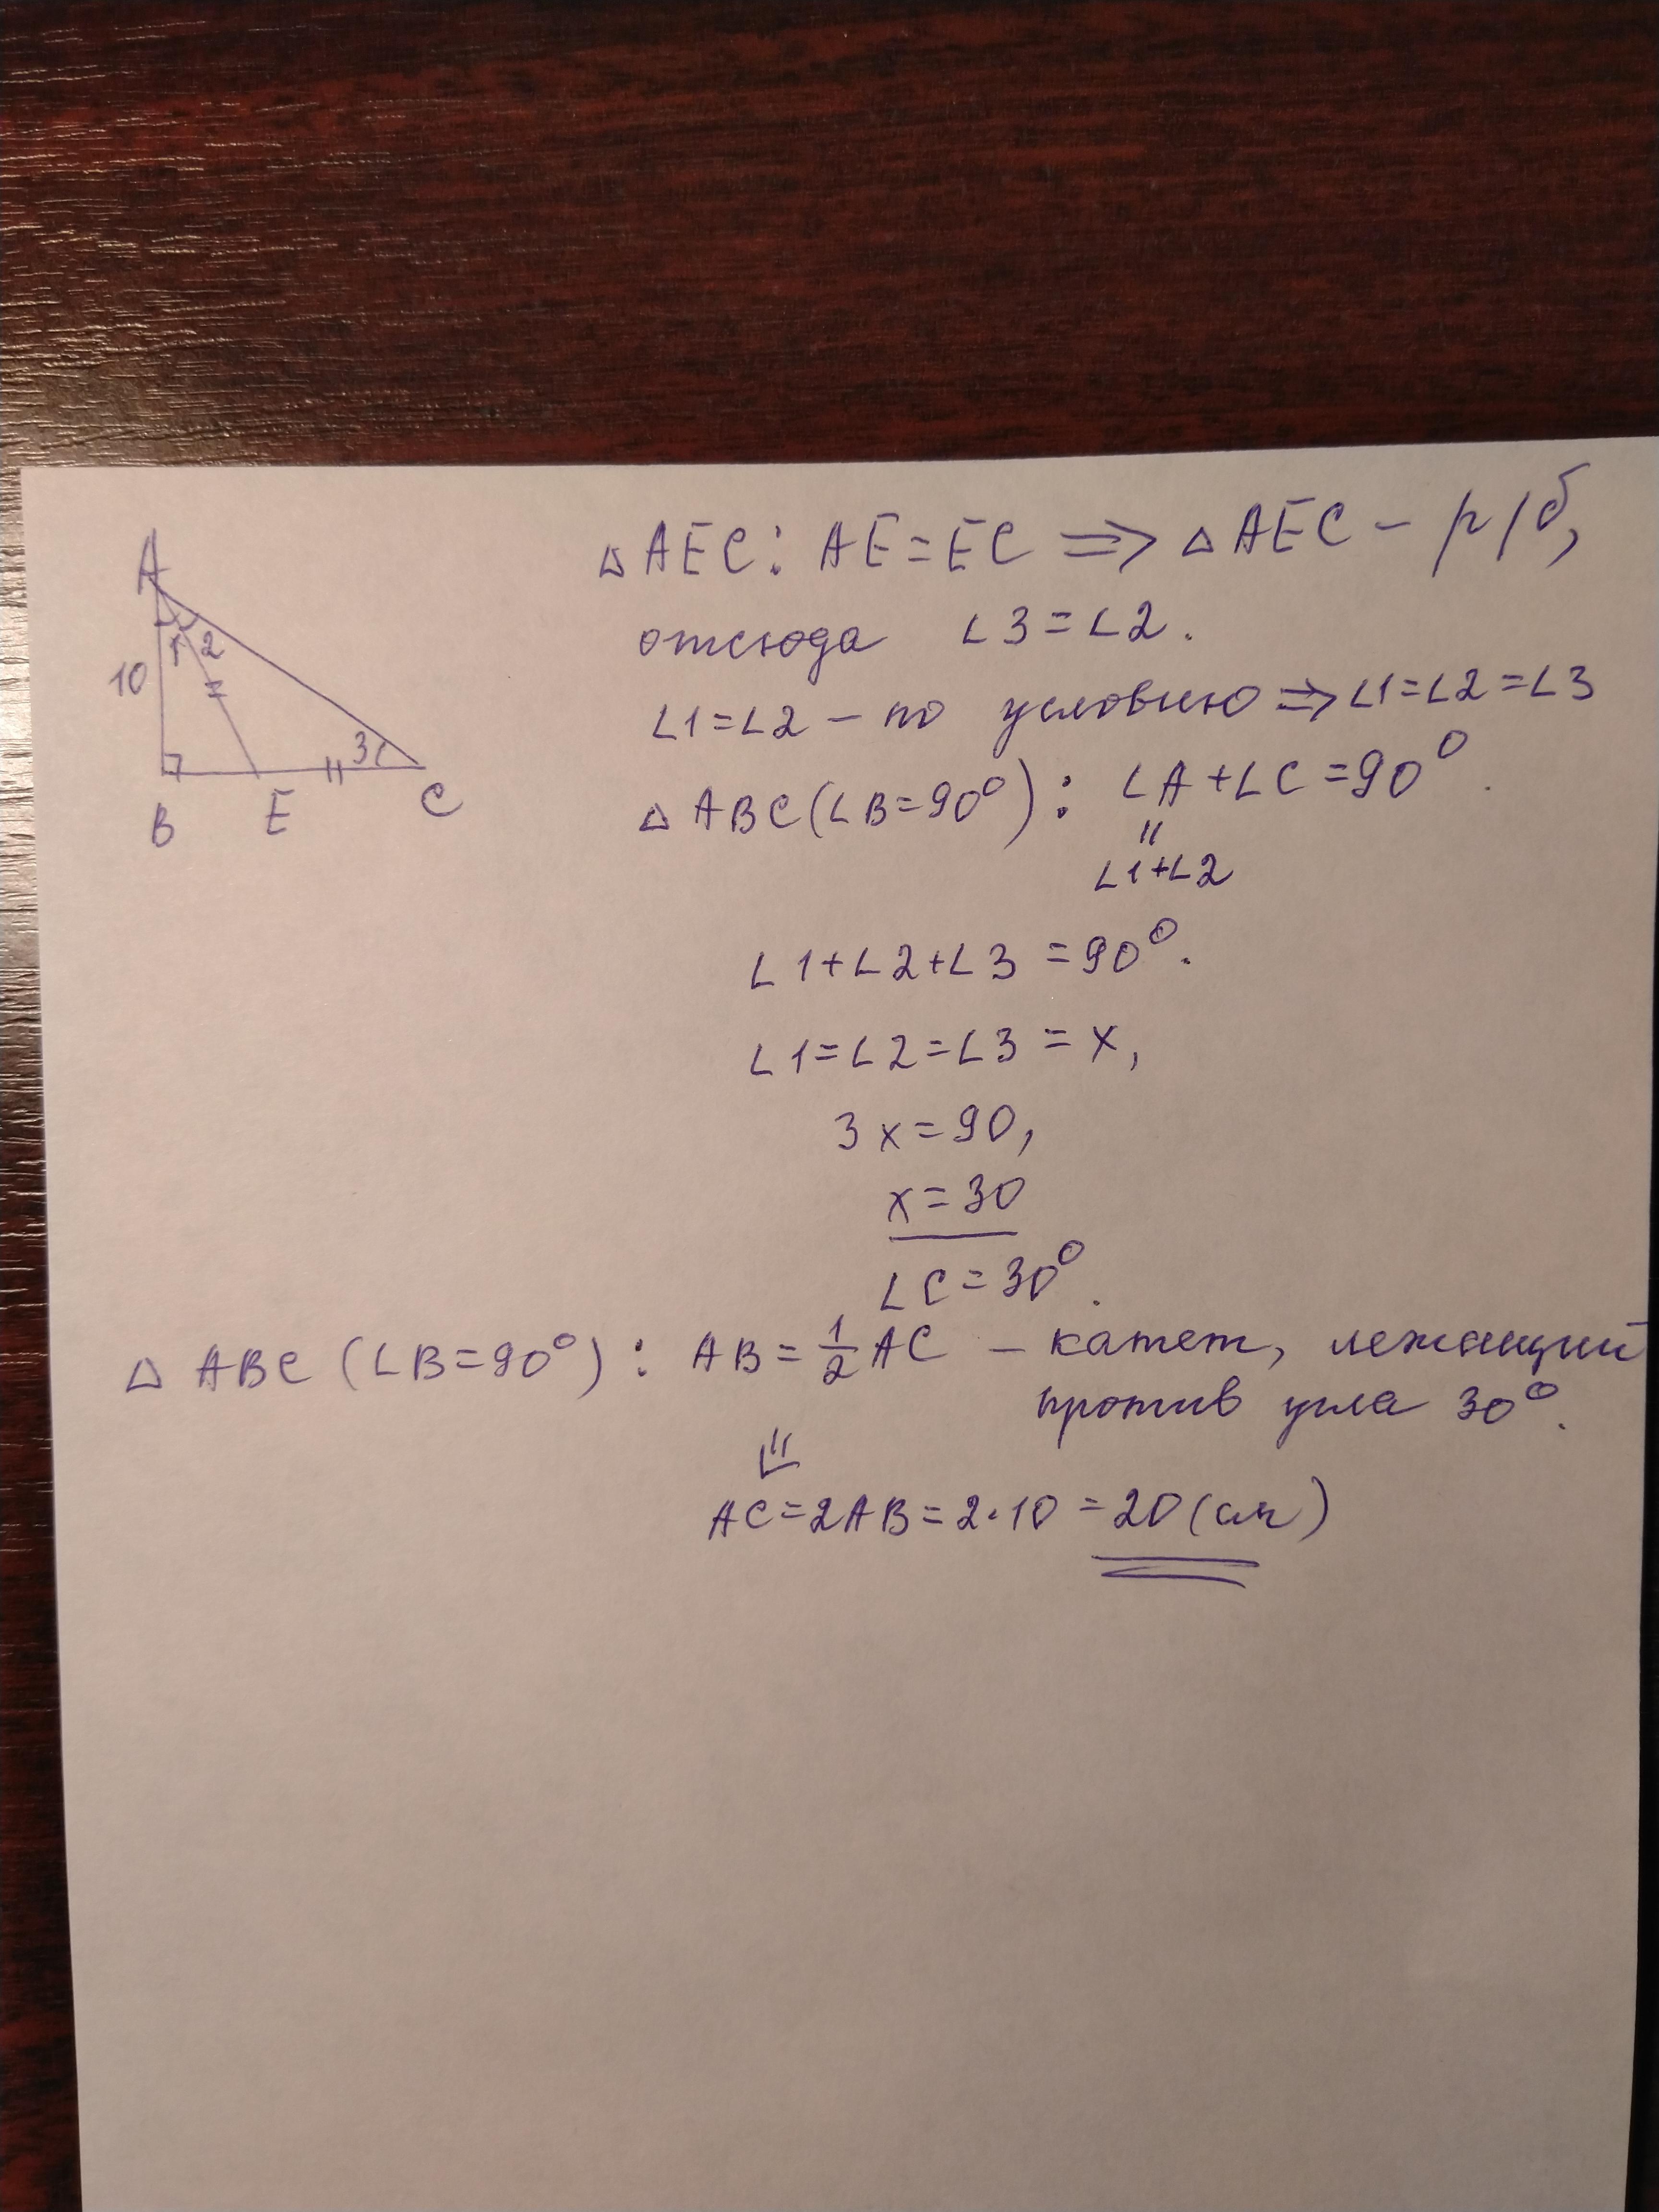 A
1 2
10
3
B E C
△ AEC: AE = EC ⇒ △ AEC – р/б,
отсюда ∠3 = ∠2.
∠1 = ∠2 – по условию ⇒ ∠1 = ∠2 = ∠3
△ ABC (∠B = 90°): ∠A + ∠C = 90°.
"
∠1 + ∠2
∠1 + ∠2 + ∠3 = 90°.
∠1 = ∠2 = ∠3 = x,
3x = 90,
x = 30
∠C = 30°.
△ ABC (∠B = 90°): AB = 1/2 AC – катет, лежащий
против угла 30°.
⇓
AC = 2AB = 2·10 = 20 (см)